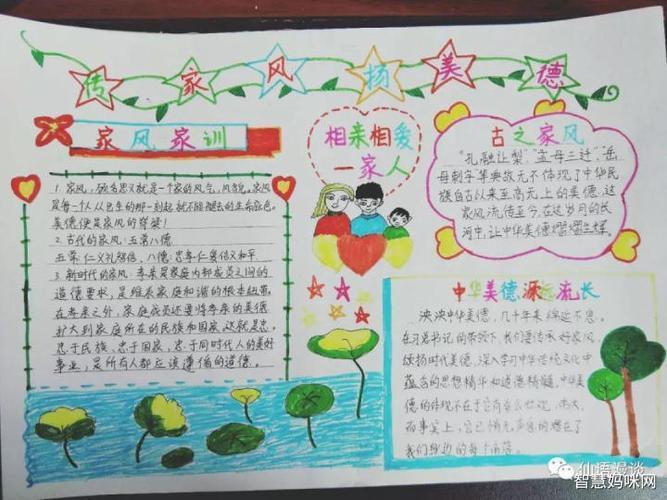 传家风扬美德
家风家训
1. 家风,顾名思义就是一个家的风气,风貌。家风
是每一个人从出生的那一刻起就不能褪去的生命底色。
美德便是家风的脊梁!
2. 古代的家风:五常八德
五常:仁义礼智信,八德:忠孝仁爱信义和平
3. 新时代的家风:孝亲是家庭内部成员之间的
道德要求,是维系家庭和谐的根本纽带。
在孝亲之外,家庭成员还要将孝亲的美德
扩大到家庭所在的民族和国家,这就是忠。
忠于民族,忠于国家,忠于同时代人的美好
事业,是所有人都应该遵循的道德。
相亲相爱
一家人
古之家风
"孔融让梨""孟母三迁",岳
母刺字等典故无不体现了中华民
族自古以来至高无上的美德。这
家风流传至今,在这岁月的长
河中,让中华美德熠熠生辉。
中华美德源远流长
泱泱中华美德,几千年来绵延不息。
在习总书记的带领下,我们要传承好家风,
颂扬时代美德,深入学习中华传统文化中
蕴含的思想精华和道德精髓。中华美
德的体现不在于它有多么壮观,伟大,
而事实上,它已悄无声息的潜在了
我们身边的每个角落。
仙语漫谈
智慧妈咪网